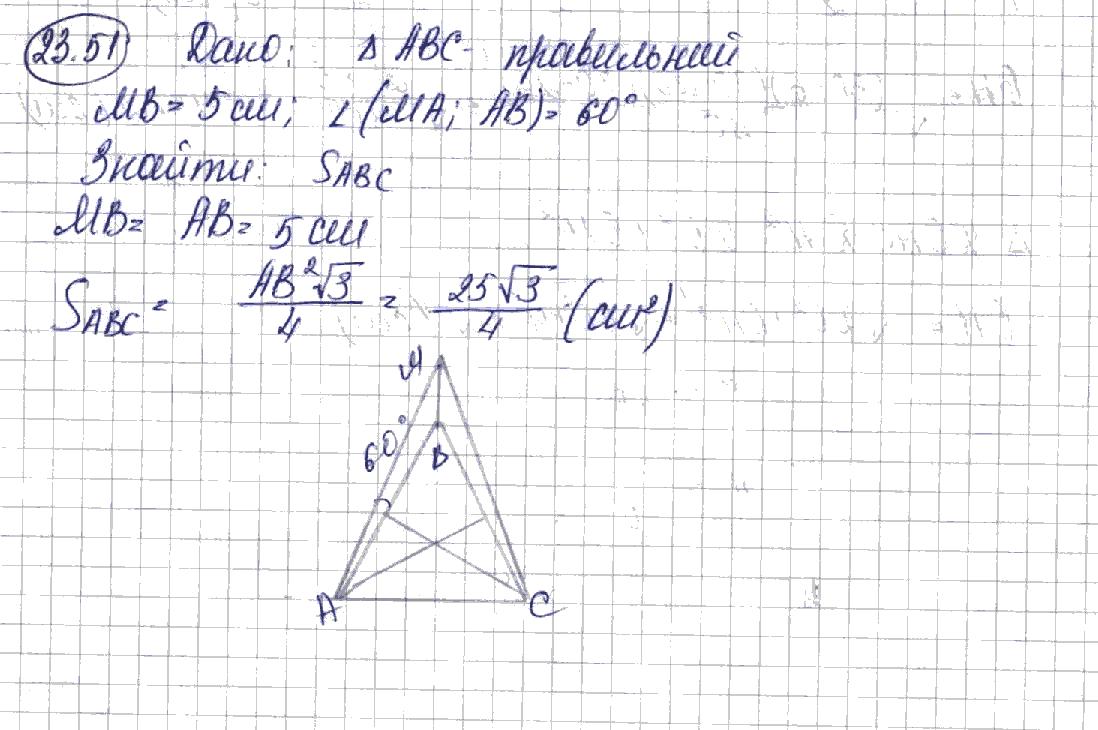 23.51 Дано: Δ ABC - правильний
MB = 5 см; ∠(MA; AB) = 60°
Знайти: S_ABC
MB = AB = 5 см
S_ABC = AB²√3/4 = 25√3/4 (см²)
M
60°
B
A C